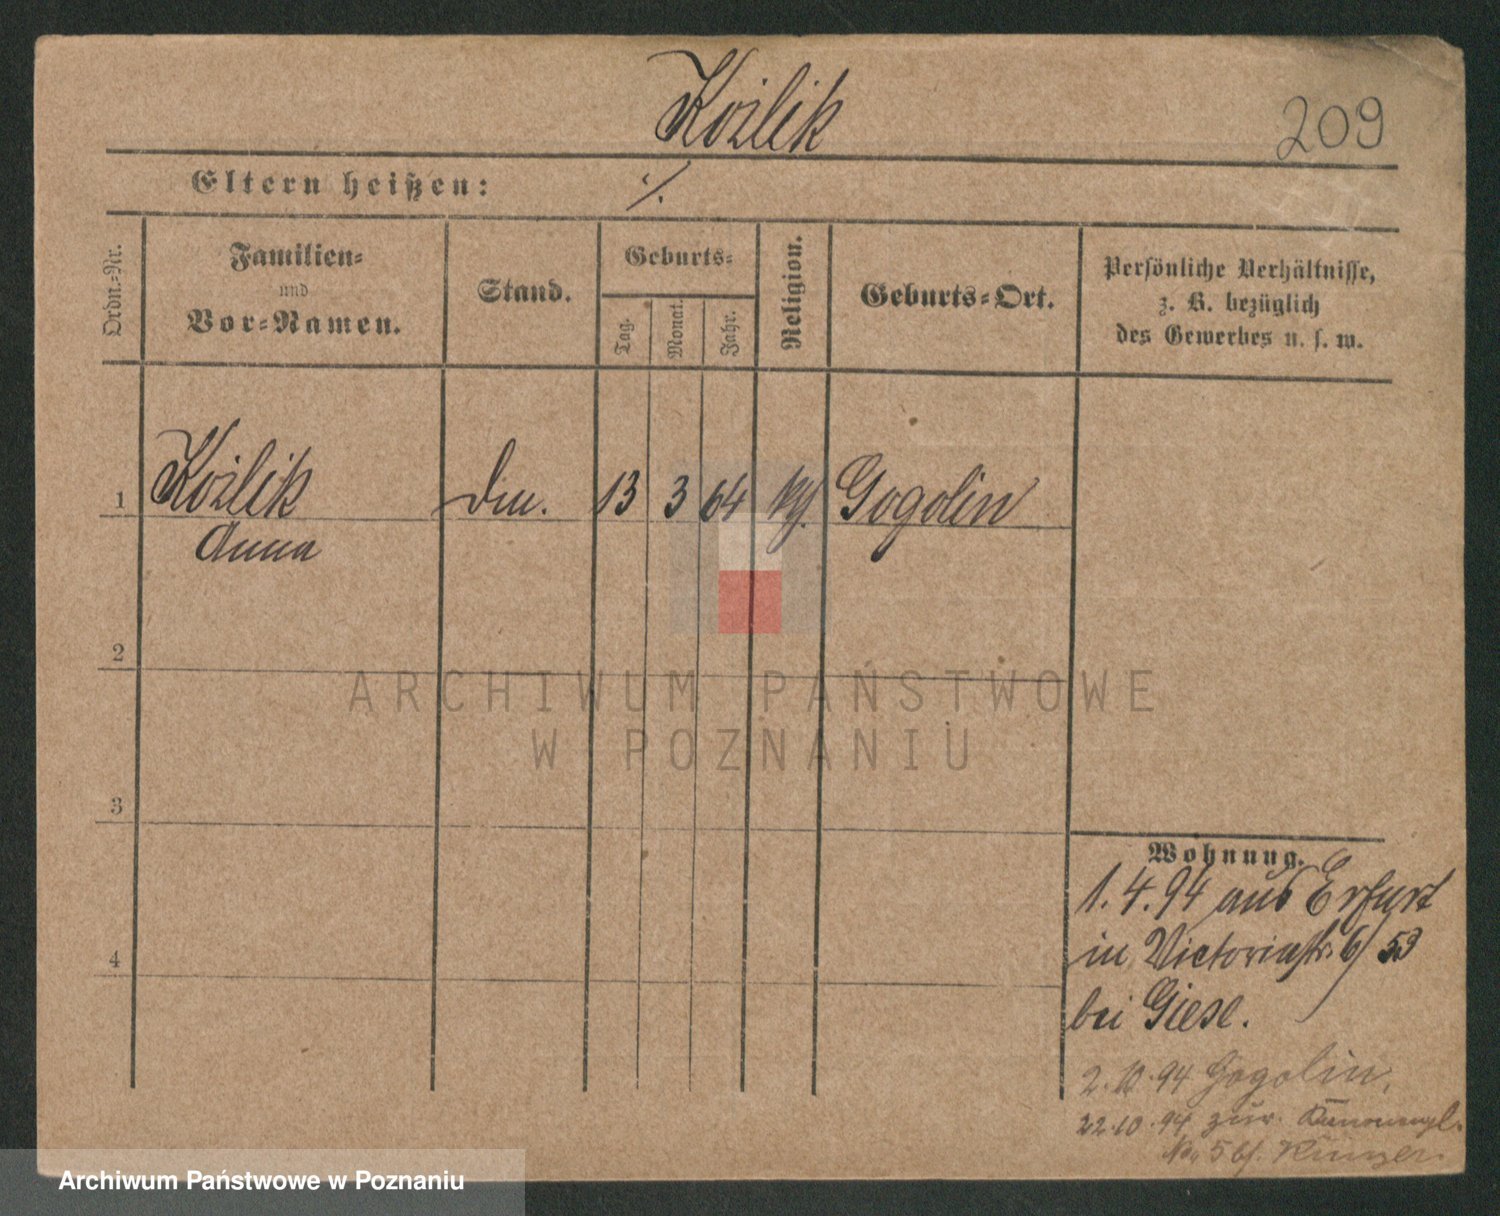 Kozlik
209
Eltern heißen: ./.
Ordn.=Nr.
Familien=
und
Vor=Namen.
Stand.
Geburts=
Tag.
Monat.
Jahr.
Religion.
Geburts=Ort.
Persönliche Verhältnisse,
z. B. bezüglich
des Gewerbes u. s. w.
1 Kozlik 13 3 64 Gogolin
Anna
2
3
4
ARCHIWUM PAŃSTWOWE
W POZNANIU
Wohnung.
1.4.94 aus Erfurt
in Victoriastr. 6/53
bei Giese.
2.10.94 Gogolin,
22.10.94 zur.
Archiwum Państwowe w Poznaniu